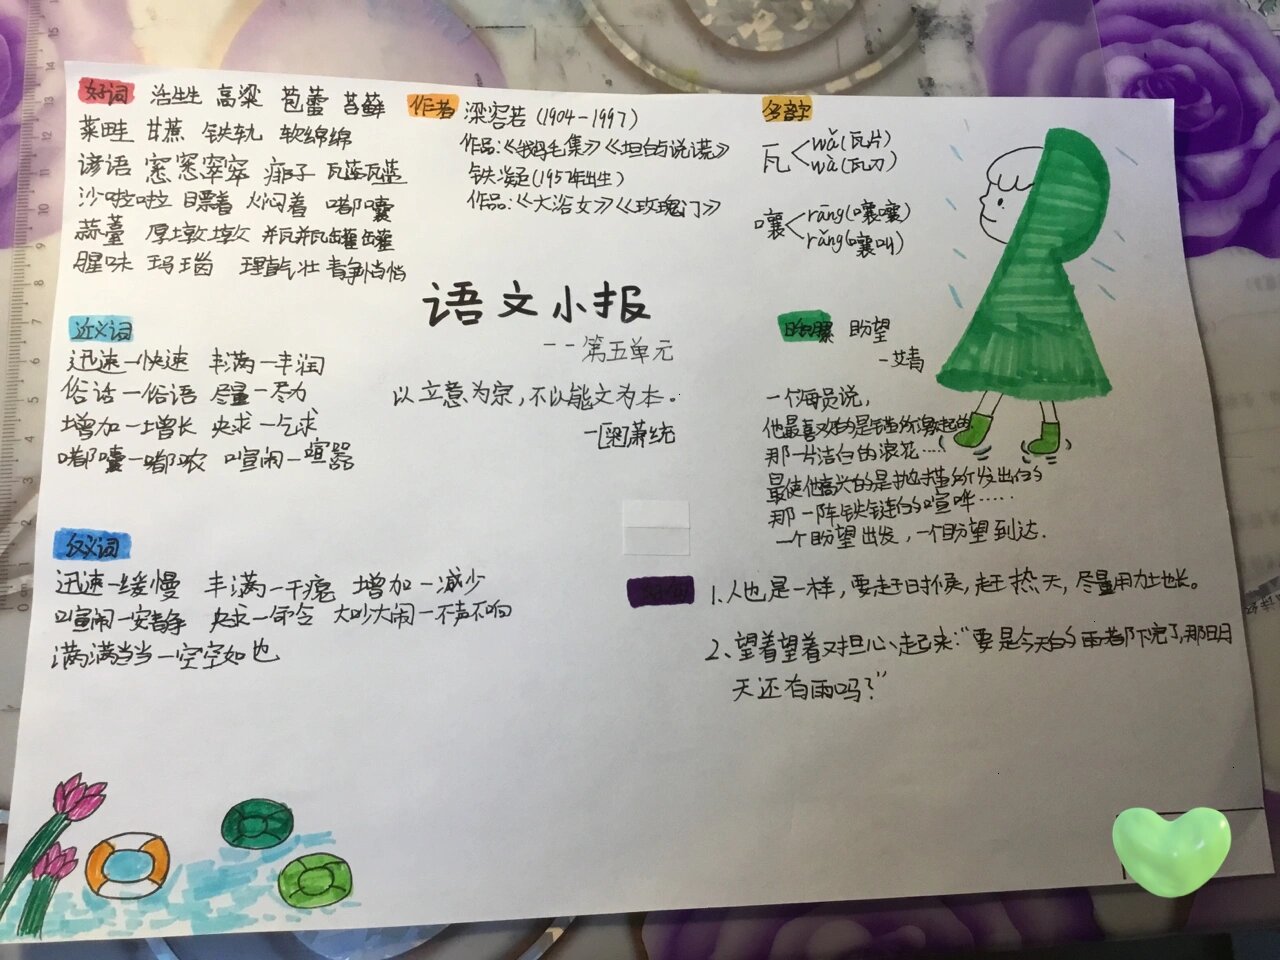 好词 活生生 高粱 苞蕾 苔藓
菜畦 甘蔗 铁轨 软绵绵
谚语 窸窸窣窣 痱子
沙啦啦 瞟着 火闷着 嘟囔
蒜薹 厚墩墩 瓶瓶罐罐
腥味 玛瑙 理直气壮 静悄悄
作者 梁容若(1904-1997)
作品:《坦白与说谎》
铁凝(1957年出生)
作品:《大浴女》《玫瑰门》
多音字
瓦 wǎ(瓦片)
wà(瓦刀)
嚷 rāng(嚷嚷)
rǎng(嚷叫)
语文小报
--第五单元
以立意为宗,不以能文为本。
-[梁]萧统
近义词
迅速-快速 丰满-丰润
俗话-俗语 尽量-尽力
增加-增长 央求-乞求
嘟囔-嘟哝 喧闹-喧嚣
反义词
迅速-缓慢 丰满-干瘪 增加-减少
喧闹-安静 央求-命令 大吵大闹-不声不响
满满当当-空空如也
盼望
-艾青
一个海员说,
他最喜欢的是起锚所激起的
那一片洁白的浪花……
最使他高兴的是抛锚所发出的
那一阵铁链的喧哗……
一个盼望出发,一个盼望到达.
1、人也是一样,要赶时候,赶热天,尽量用力地长。
2、望着望着又担心起来:“要是今天的雨都下完了,那明
天还有雨吗?”